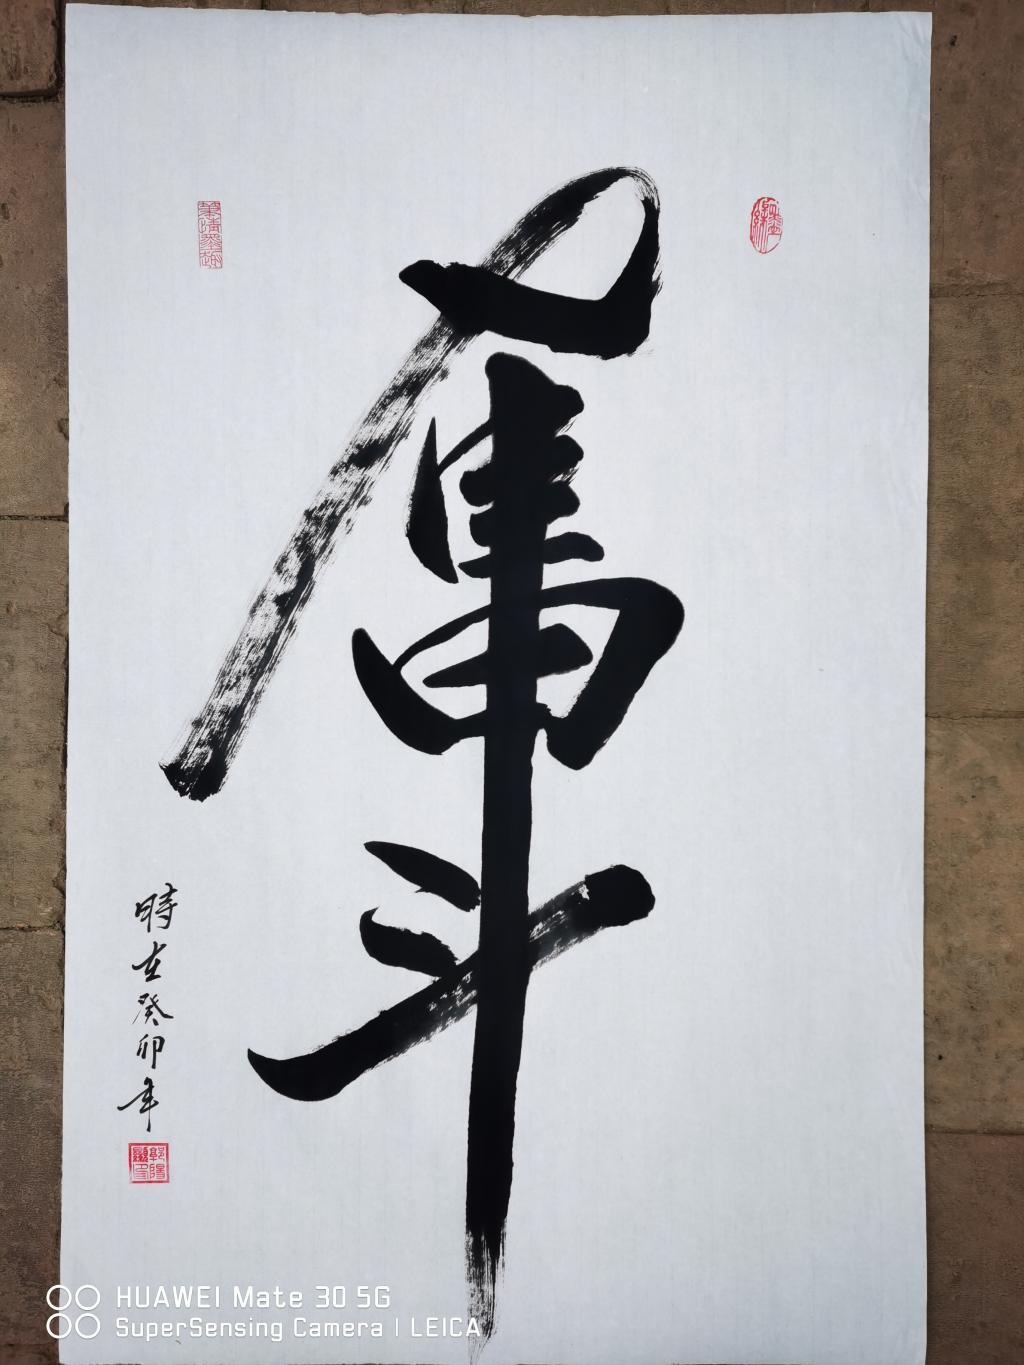 奮斗
時在癸卯年
HUAWEI Mate 30 5G
SuperSensing Camera | LEICA